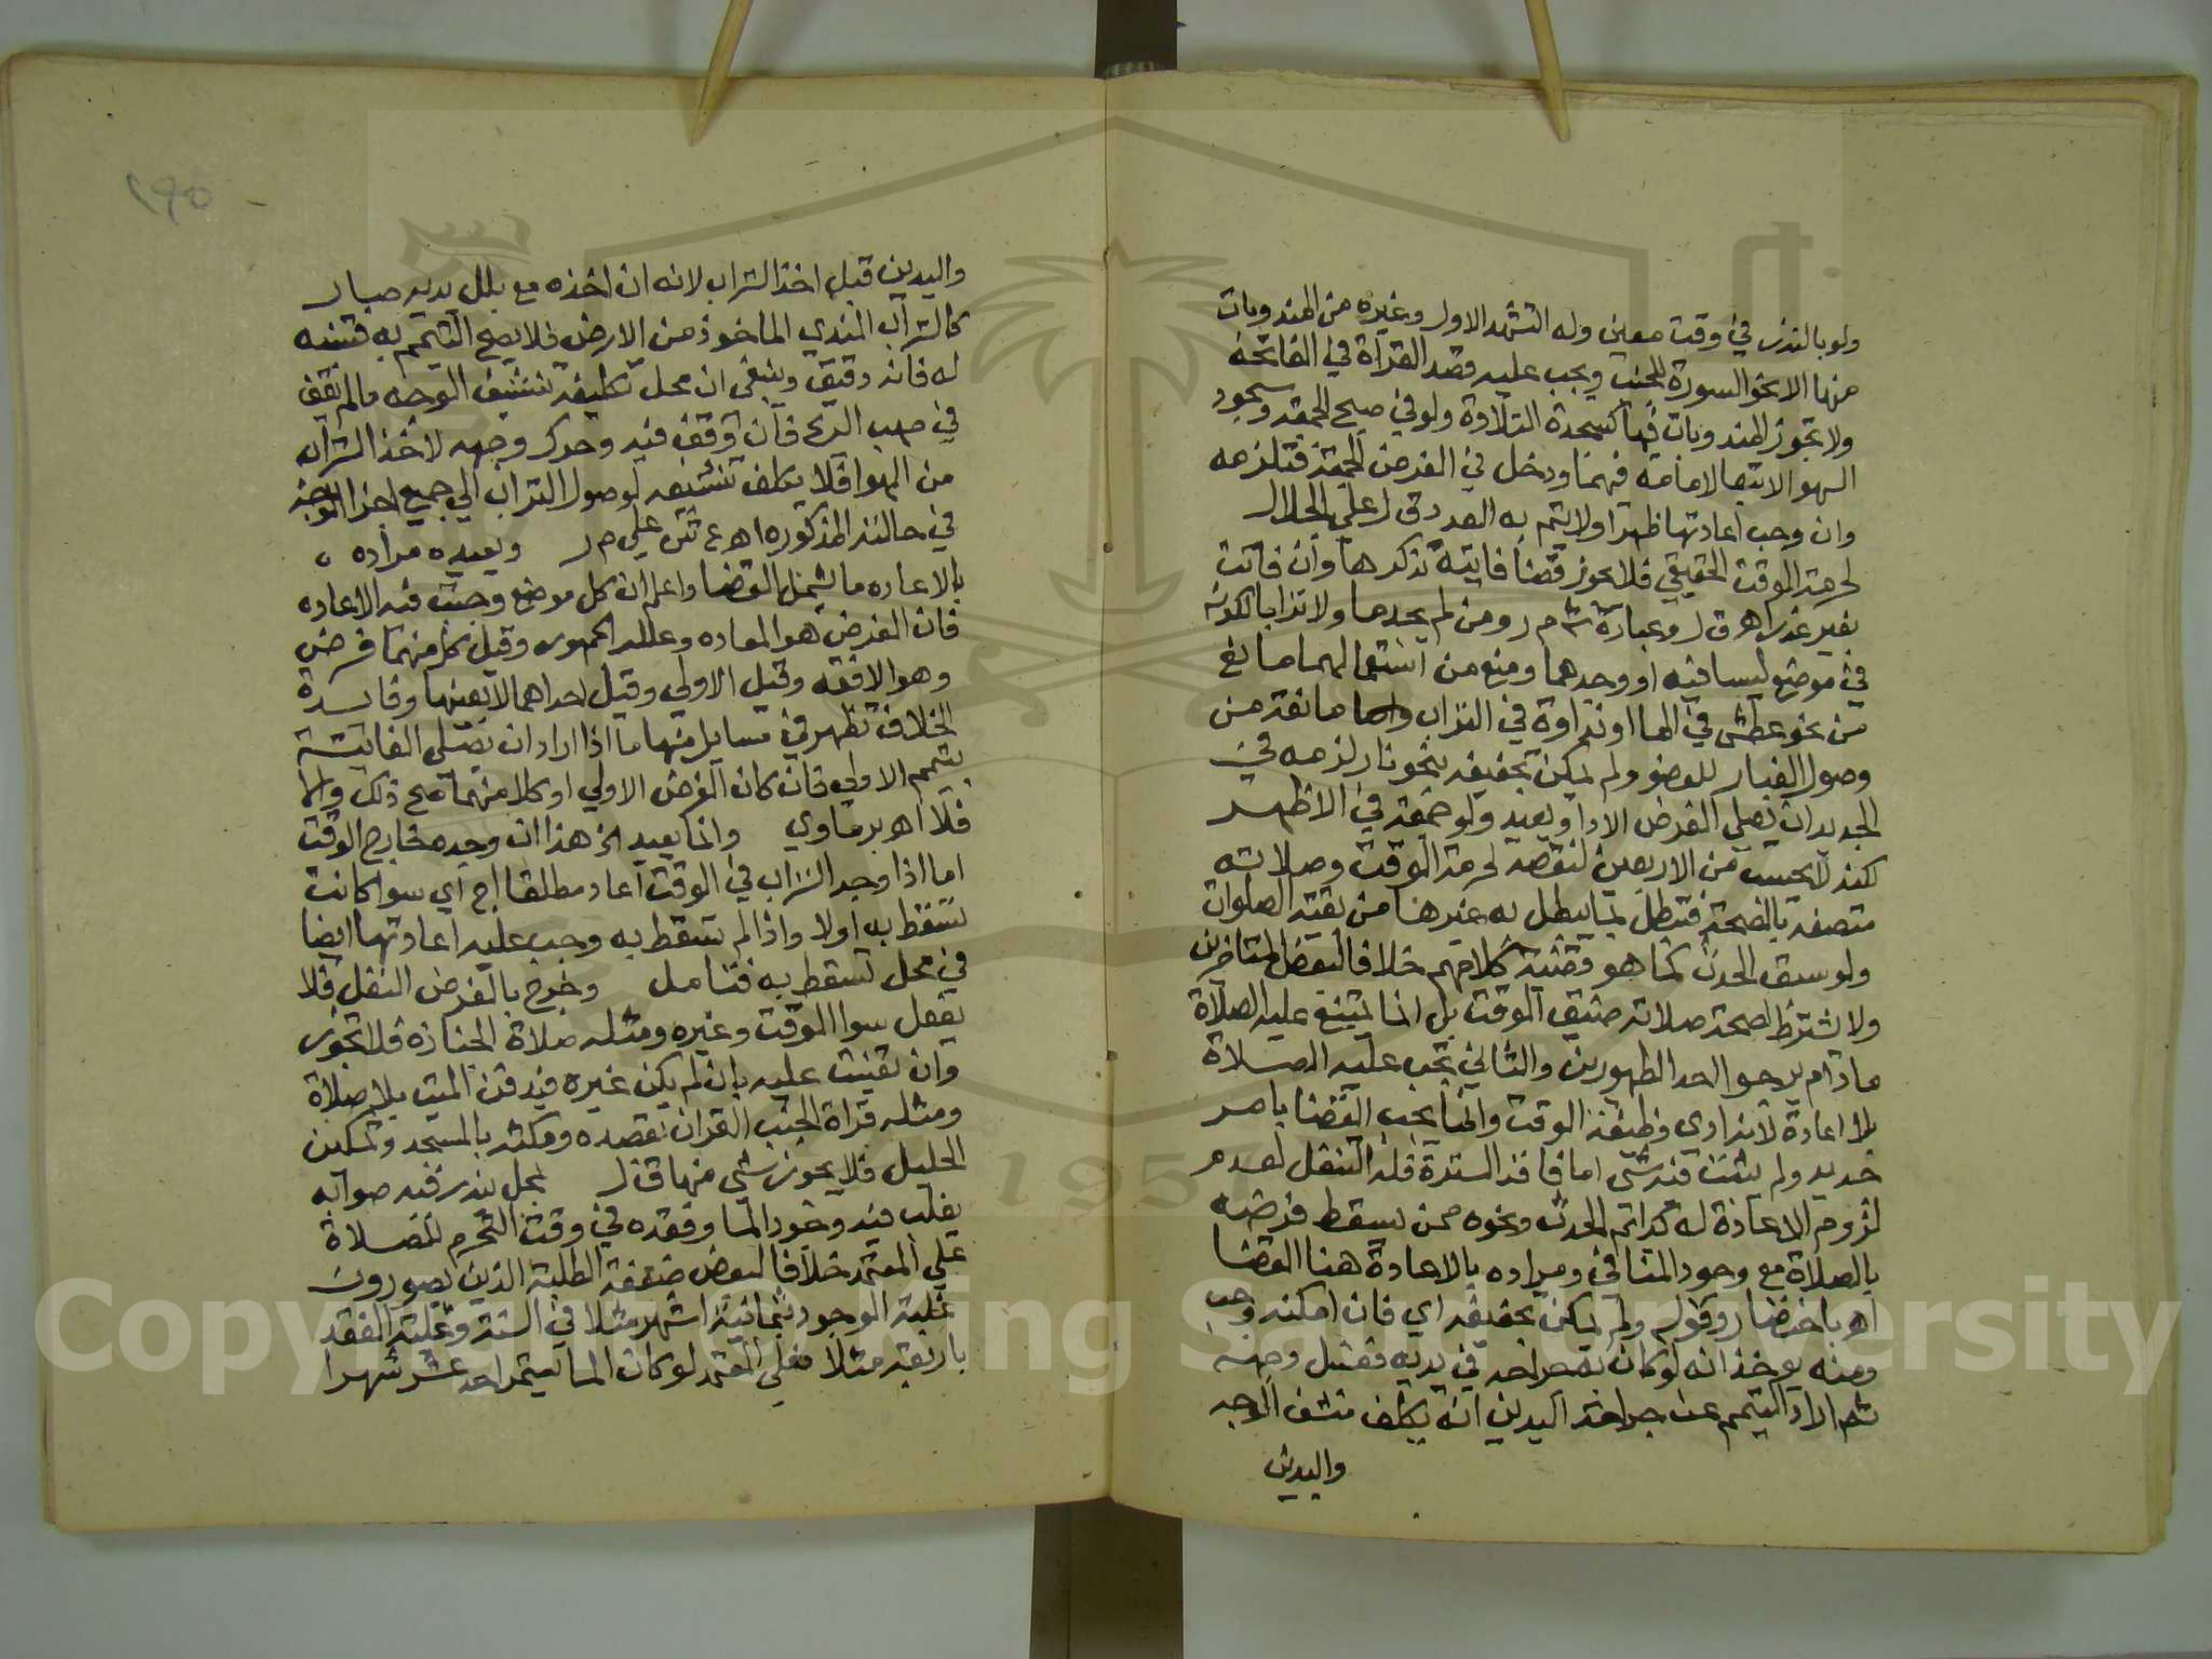 ولو بالنذر في وقت معين وله التشهد الاول وغيره من المندوبات
منها الا نحو السورة للجنب ويجب عليه قصد القراة في الفاتحة
ولا تجوز المندوبات فيها كسجدة التلاوة ولو في صبح الجمعة وسجود
السهو الا تبعا لامامه فيهما ودخل في الفرض الجمعة فتلزمه
وان وجب اعادتها ظهرا ولا يتم به العدد ق ل علي الجلال
لحرمة الوقت الحقيقي فلا يجوز قضا فايتة تذكرها وان فاتت
بغير عذر اهـ ق ل وعبارة ش م ر ومن لم يجد ما ولا ترابا لكونه
في موضع ليسا فيه او وجدهما ومنع من استعمالهما مانع
من نحو عطش في الما او نداوة في التراب مانعة من
وصول الغبار للعضو ولم يمكن تجفيفه بنحو نار لزمه في
الجديد ان يصلي الفرض الادا ويعيد ولو جمعة في الاظهر
لكنه لا يحسب من الاربعين لنقصه لحرمة الوقت وصلاته
متصفة بالصحة فتبطل بما يبطل به غيرها من بقية الصلوات
ولو سبق الحدث كما هو قضية كلامهم خلافا لبعض المتاخرين
ولا يشترط لصحة صلاته ضيق الوقت بل انما يمتنع عليه الصلاة
ما دام يرجو احد الطهورين والثاني تجب عليه الصلاة
بلا اعادة لانه ادى وظيفة الوقت وانما يجب القضا بامر
جديد ولم يثبت فيه شي اما فاقد السترة فله التنفل لعدم
لزوم الاعادة له كدائم الحدث ونحوه ممن يسقط فرضه
بالصلاة مع وجود المنافي ومراده بالاعادة هنا القضا
اهـ باختصار وقوله ولم يمكن تجفيفه اي فان امكنه وجب
ومنه يوخذ انه لو كان به جراحة في يديه فغسل وجهه
ثم اراد التيمم عن جراحة اليدين انه يكلف تنشف الوجه
واليدين
١٩٥
واليدين قبل اخذ التراب لانه ان اخذه مع بلل يديه صار
كالتراب المندي الماخوذ من الارض فلا يصح التيمم به فتنبه
له فانه دقيق وينبغي ان محل تكليفه تنشيف الوجه ما لم يقف
في مهب الريح فان وقف فيه وحرك وجهه لاخذ التراب
من الهوا فلا يكلف تنشيفه لوصول التراب الي جميع اجزا الوجه
في حالته المذكوره اهـ ع ش علي م ر ويعيده مراده
بالاعاده ما يشمل القضا واعلم ان كل موضع وجبت فيه الاعاده
فان الفرض هو المعاده وعليه الجمهور وقيل كل منهما فرض
وهو الافقه وقيل الاولي وقيل احداهما لا بعينها وفايدة
الخلاف تظهر في مسايل منها ما اذا اراد ان يصلي الفايتة
بتيمم الاولي فان كان الفرض الاولي او كلا منهما صح ذلك والا
فلا اهـ برماوي وانما يعيد الخ هذا ان وجده خارج الوقت
اما اذا وجد التراب في الوقت اعاد مطلقا اج اي سوا كانت
تسقط به اولا واذا لم تسقط به وجب عليه اعادتها ايضا
في محل تسقط به فتامل وخرج بالفرض النفل فلا
يفعل سوا الموقت وغيره ومثله صلاة الجنازة فلا تجوز
وان تعينت عليه بان لم يكن غيره فيدفن الميت بلا صلاة
ومثله قراة الجنب القران بقصده ومكثه بالمسجد وتمكين
الحليل فلا يجوز شي منها ق ل بمحل يندر فيه صوابه
يغلب فيه وجود الما وفقده في وقت التحرم للصلاة
علي المعتمد خلافا لبعض ضعفة الطلبة الذين يصورون
غلبة الوجود بثمانية اشهر مثلا في السنة وغلبة الفقد
باربعة مثلا فعلي المعتمد لو كان الما يستمر احد عشر شهرا
Copyright © King Saud University
1957